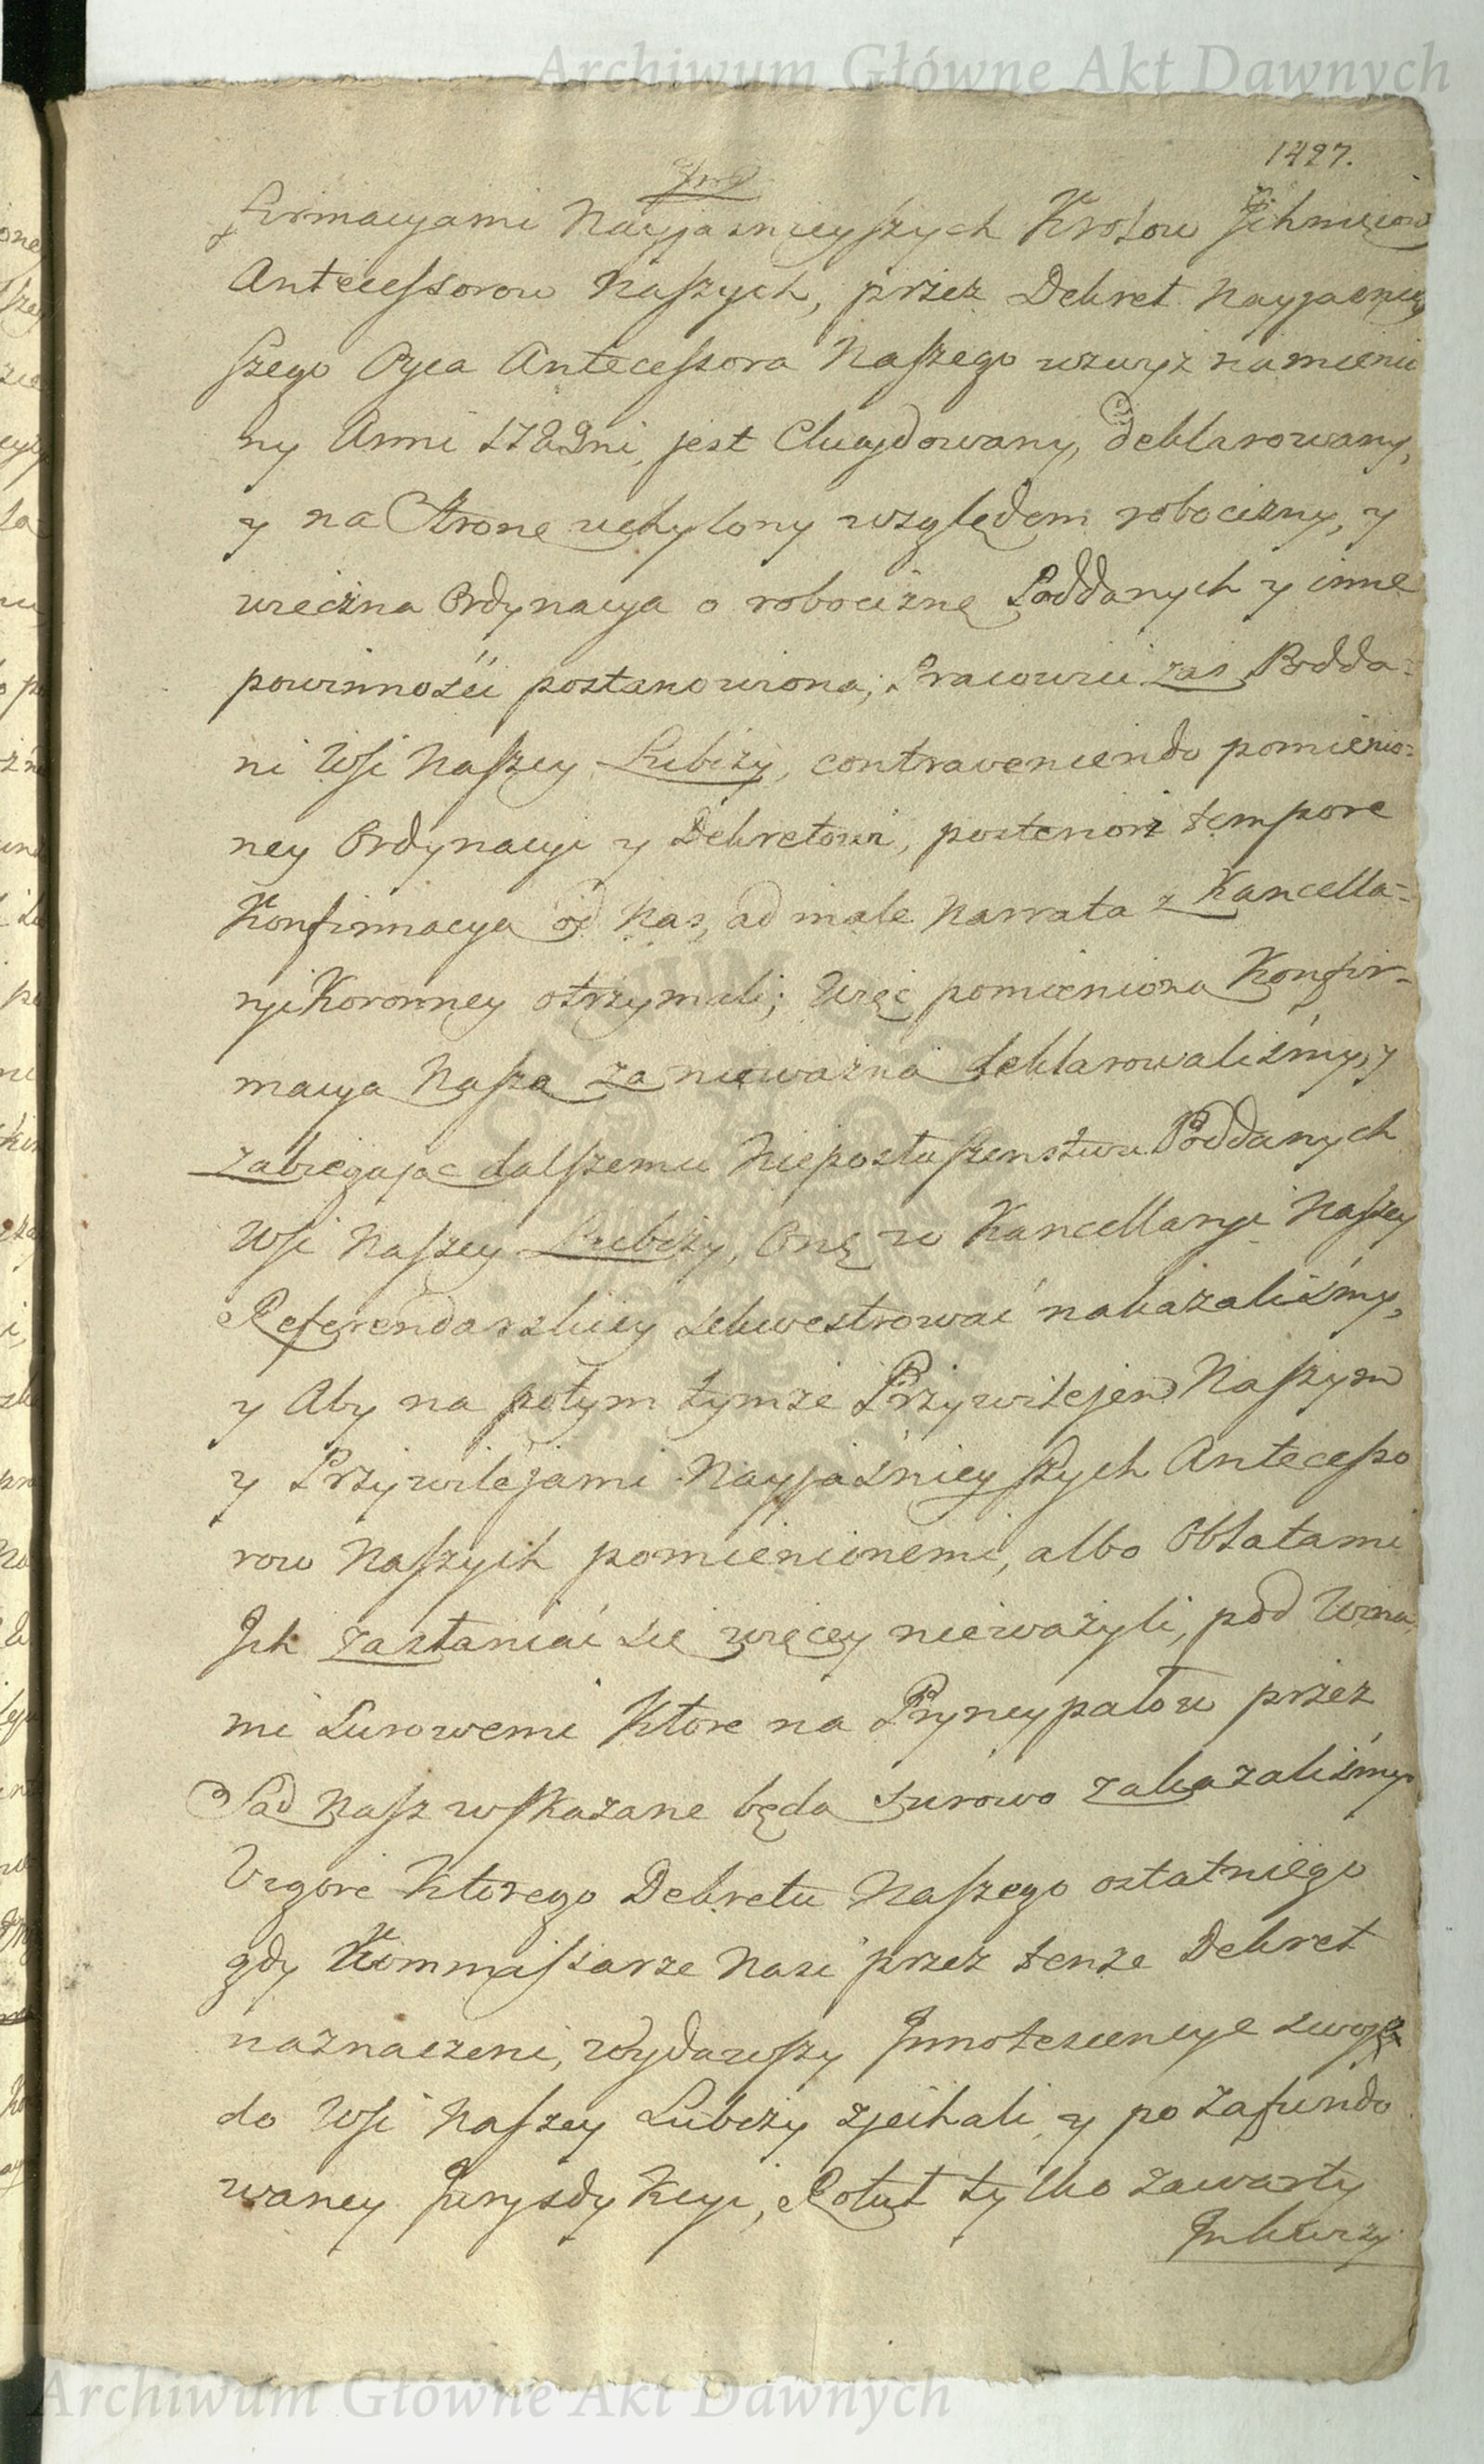 Archiwum Główne Akt Dawnych
1427.
firmacyami Nayjasnieyszych Krolow Ichmciow
Antecessorow Naszych, przez Dekret Nayjasniey
szego Oyca Antecessora Naszego wzwyż namienio
ny Anni 1722ni, jest Elucydowany, deklarowany,
y na Stronę uchylony względem robocizny, y
wieczna Ordynacya o robociznę Poddanych y inne
powinności postanowiona; Pracowici zas Podda=
ni Wsi Naszey Lubiży, contraveniendo pomienio=
ney Ordynacyi y Dekretowi, posteriori tempore
Konfirmacya od Nas, ad male narrata z Kancella=
ryi Koronney otrzymali; Więc pomieniona Konfir=
macya Nasza za nieważną deklarowaliśmy, y
zabiegając dalszemu Nieposłuszenstwu Poddanych
Wsi Naszey Lubiży, Onę w Kancellaryi Naszey
Referendarskiey sekwestrować nakazaliśmy,
y Aby na potym tymże Przywilejem Naszym
y Przywilejami Nayjaśnieyszych Antecesso
row Naszych pomienionemi, albo Oblatami
Ich zasłaniać się więcey nieważyli, pod Wina
mi Surowemi Ktore na Pryncypałow przez
Sąd Nasz wskazane będą surowo zakazaliśmy
Vigore Ktorego Dekretu Naszego ostatniego
gdy Kommissarze Nasi przez tenże Dekret
naznaczeni, wydawszy Innotescencye swoje
do Wsi Naszey Lubiży zjechali, y po zafundo
waney Jurysdykcyi, Rotuł tylko zawarty
Inkwizy
Archiwum Główne Akt Dawnych